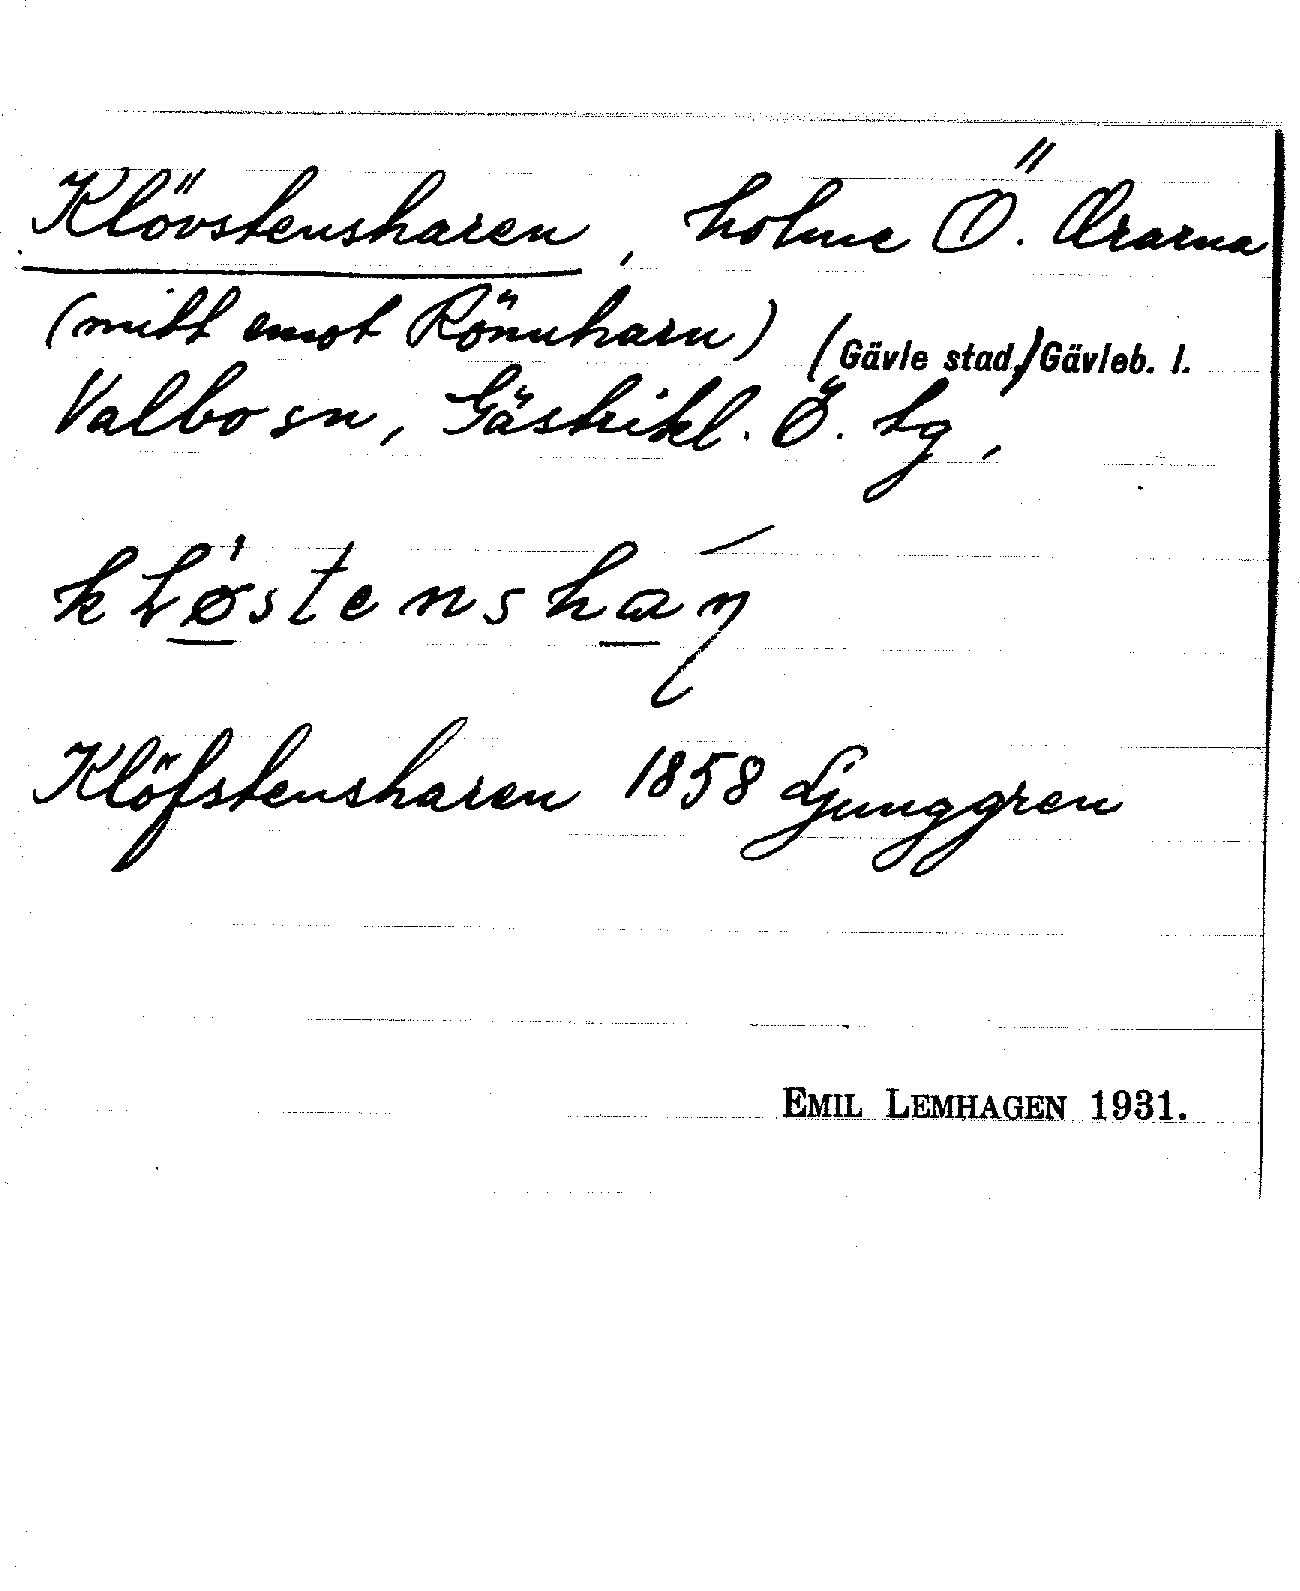 Klövstensharen, holme Ö. Orarna
(mitt emot Rönnharn) (Gävle stad,) Gävleb. l.
Valbo sn, Gästrikl. Ö. tg,
Klöfstensharen 1858 Ljunggren
EMIL LEMHAGEN 1931.